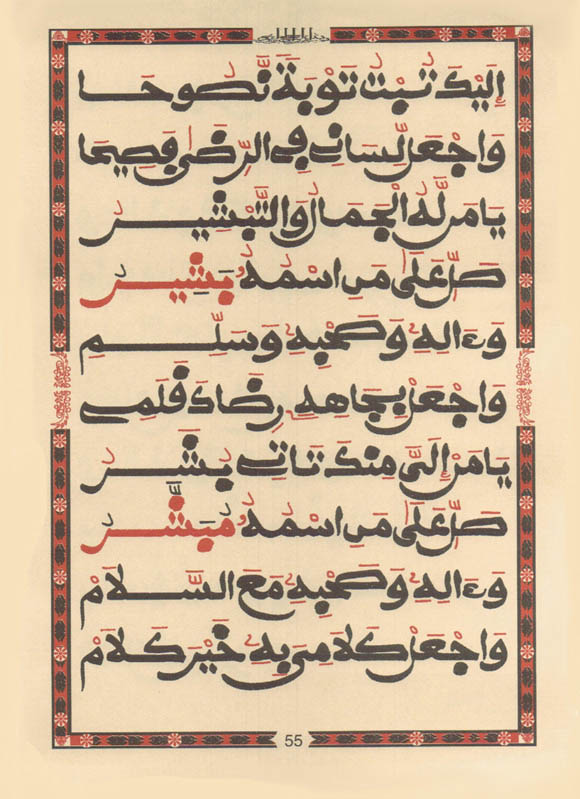 إِلَيْكَ تُبْتُ تَوْبَةً نَّصُوحَا
وَاجْعَل لِّسَانِي فِي الرِّضَى فَصِيحَا
يَا مَن لَّهُ الْجَمَالُ وَالتَّبْشِيرُ
صَلِّ عَلَى مَنِ اسْمُهُ بَشِيرُ
وَءَالِهِ وَصَحْبِهِ وَسَلِّمِ
وَاجْعَلْ بِجَاهِهِ رِضَاكَ قَلَمِي
يَا مَنْ إِلَيَّ مِنْكَ تَاتِي بُشَرُ
صَلِّ عَلَى مَنِ اسْمُهُ مُبَشِّرُ
وَءَالِهِ وَصَحْبِهِ مَعَ السَّلَامْ
وَاجْعَلْ كَلَامِي بِهِ خَيْرَ كَلَامْ
55